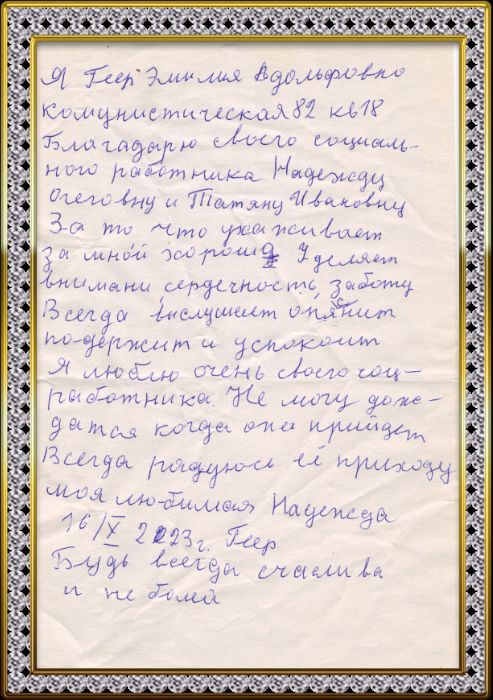 Я Геер Эмилия Адольфовна
комунистическая 82 кв 18
Благадарю своего социаль-
ного работника Надежду
Олеговну и Татяну Ивановну
За то что ухаживает
за мной хорошо Уделяет
внимани сердечность, заботу
Всегда выслушеит
подержит и успокоит
Я люблю очень своего соц-
работника. Не могу дож-
датся когда она прийдет
Всегда радуюсь её приходу
моя любимая Надежда
16/X 2023г. Геер
Будь всегда счаслива
и не болей